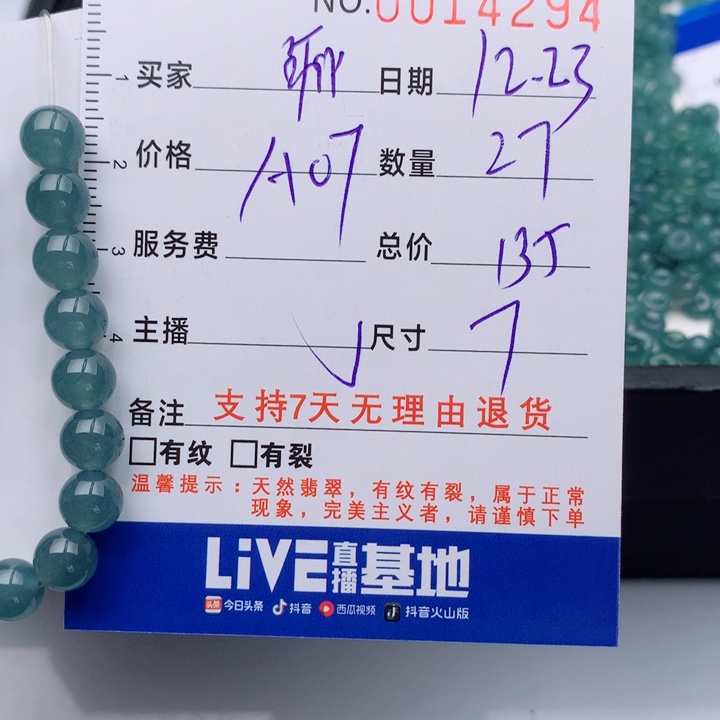 NO.0014294
1 买家 日期 12-23
2 价格 A07 数量 27
3 服务费 总价 135
4 主播 尺寸 7
备注 支持7天无理由退货
□有纹 □有裂
温馨提示：天然翡翠，有纹有裂，属于正常
现象，完美主义者，请谨慎下单
LiVE直播基地
头条 今日头条 抖音 西瓜视频 抖音火山版